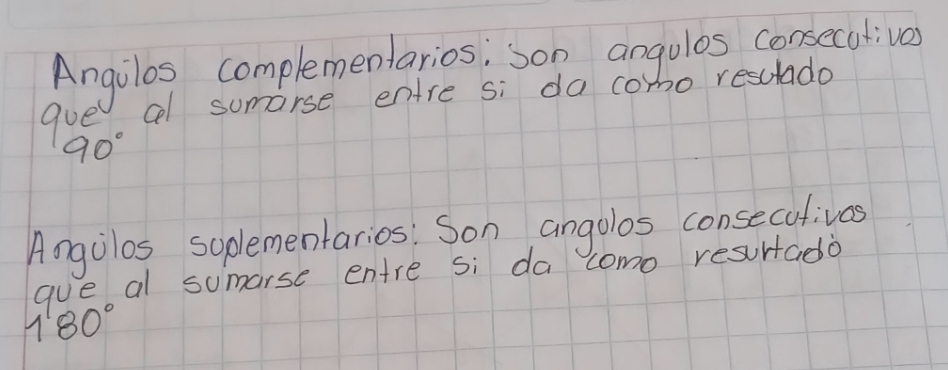 Angúlos complementarios: Son angulos consecutivos
que al sumarse entre si da como resultado
90°
Angúlos suplementarios: Son angulos consecutivos
que al sumarse entre si da como resultado
180°